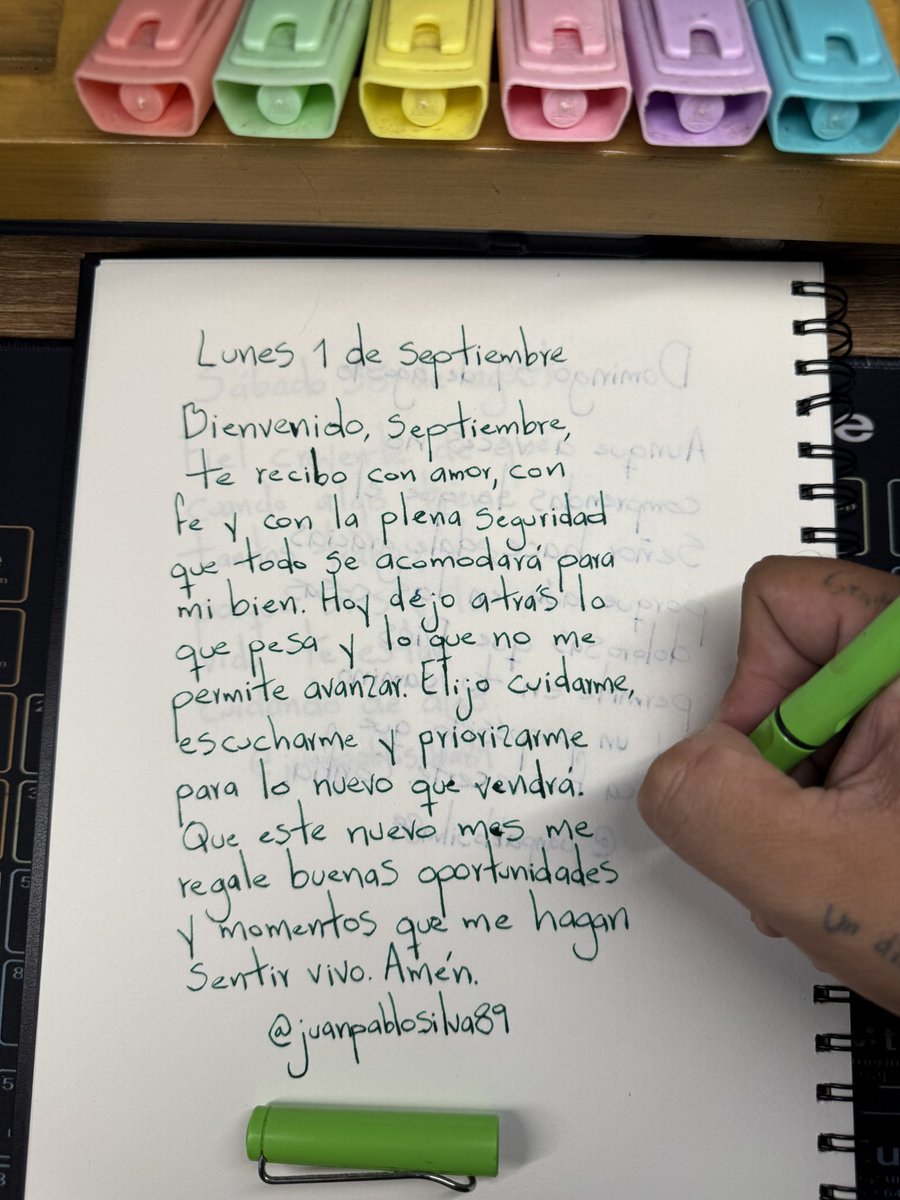 Lunes 1 de septiembre
Bienvenido, septiembre,
te recibo con amor, con
fe y con la plena seguridad
que todo se acomodará para
mi bien. Hoy dejo atrás lo
que pesa y lo que no me
permite avanzar. Elijo cuidarme,
escucharme y priorizarme
para lo nuevo que vendrá.
Que este nuevo mes me
regale buenas oportunidades
y momentos que me hagan
sentir vivo. Amén.
@juanpablosilva89
Un di